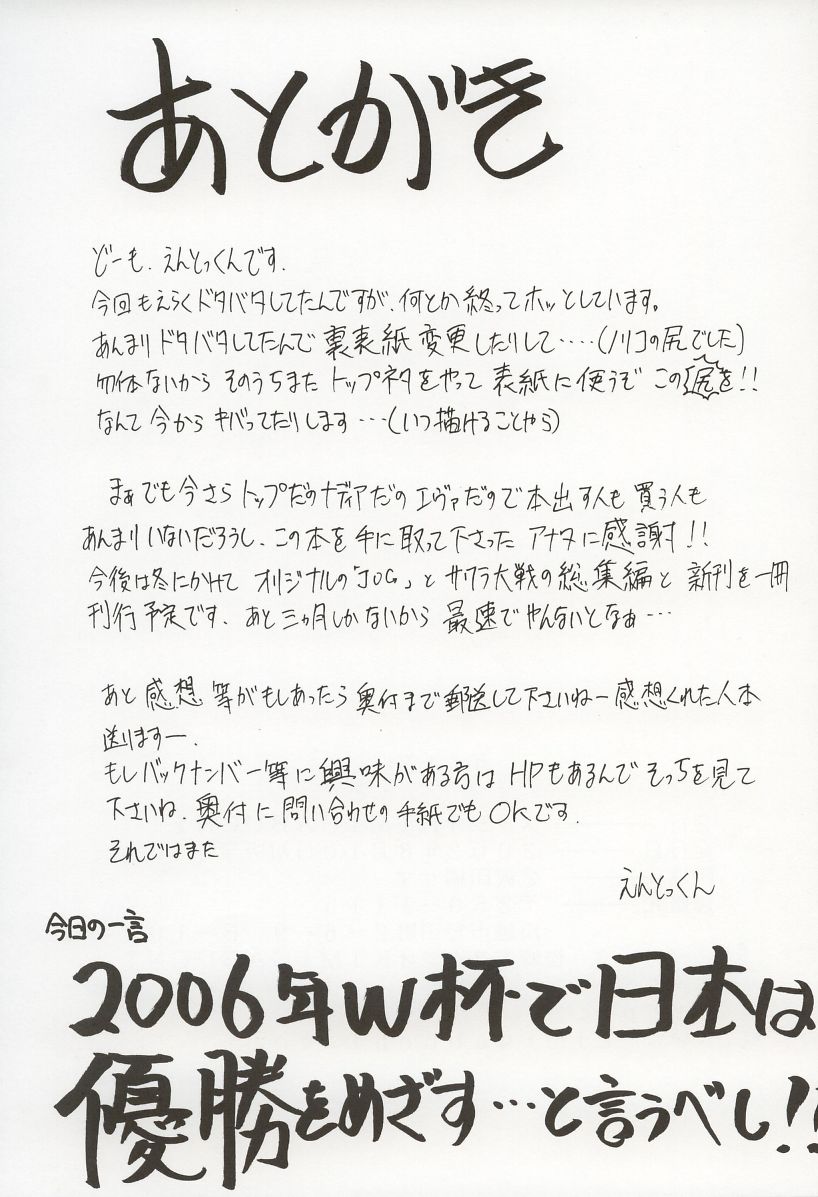 あとがき
どーも、えんとっくんです。
今回もえらくドタバタしてたんですが、何とか終ってホッとしています。
あんまりドタバタしてたんで裏表紙変更したりして‥‥(ノリコの尻でした)
勿体ないからそのうちまたトップネタをやって表紙に使うぞこの尻を!!
なんて今からキバってたりします…(いつ描けることやら)
まぁでも今さらトップだのナディアだのエヴァだので本出す人も買う人も
あんまりいないだろうし、この本を手に取って下さったアナタに感謝!!
今後は冬にかけてオリジナルの「JOG」とサクラ大戦の総集編と新刊を一冊
刊行予定です、あと三ヵ月しかないから最速でやんないとなぁ…
あと感想等がもしあったら奥付まで郵送して下さいねー感想くれた人本
送りますー、
もしバックナンバー等に興味がある方はHPもあるんでそっちを見て
下さいね、奥付に問い合わせの手紙でもOKです、
それではまた
えんとっくん
今日の一言
2006年W杯で日本は
優勝をめざす…と言うべし!!